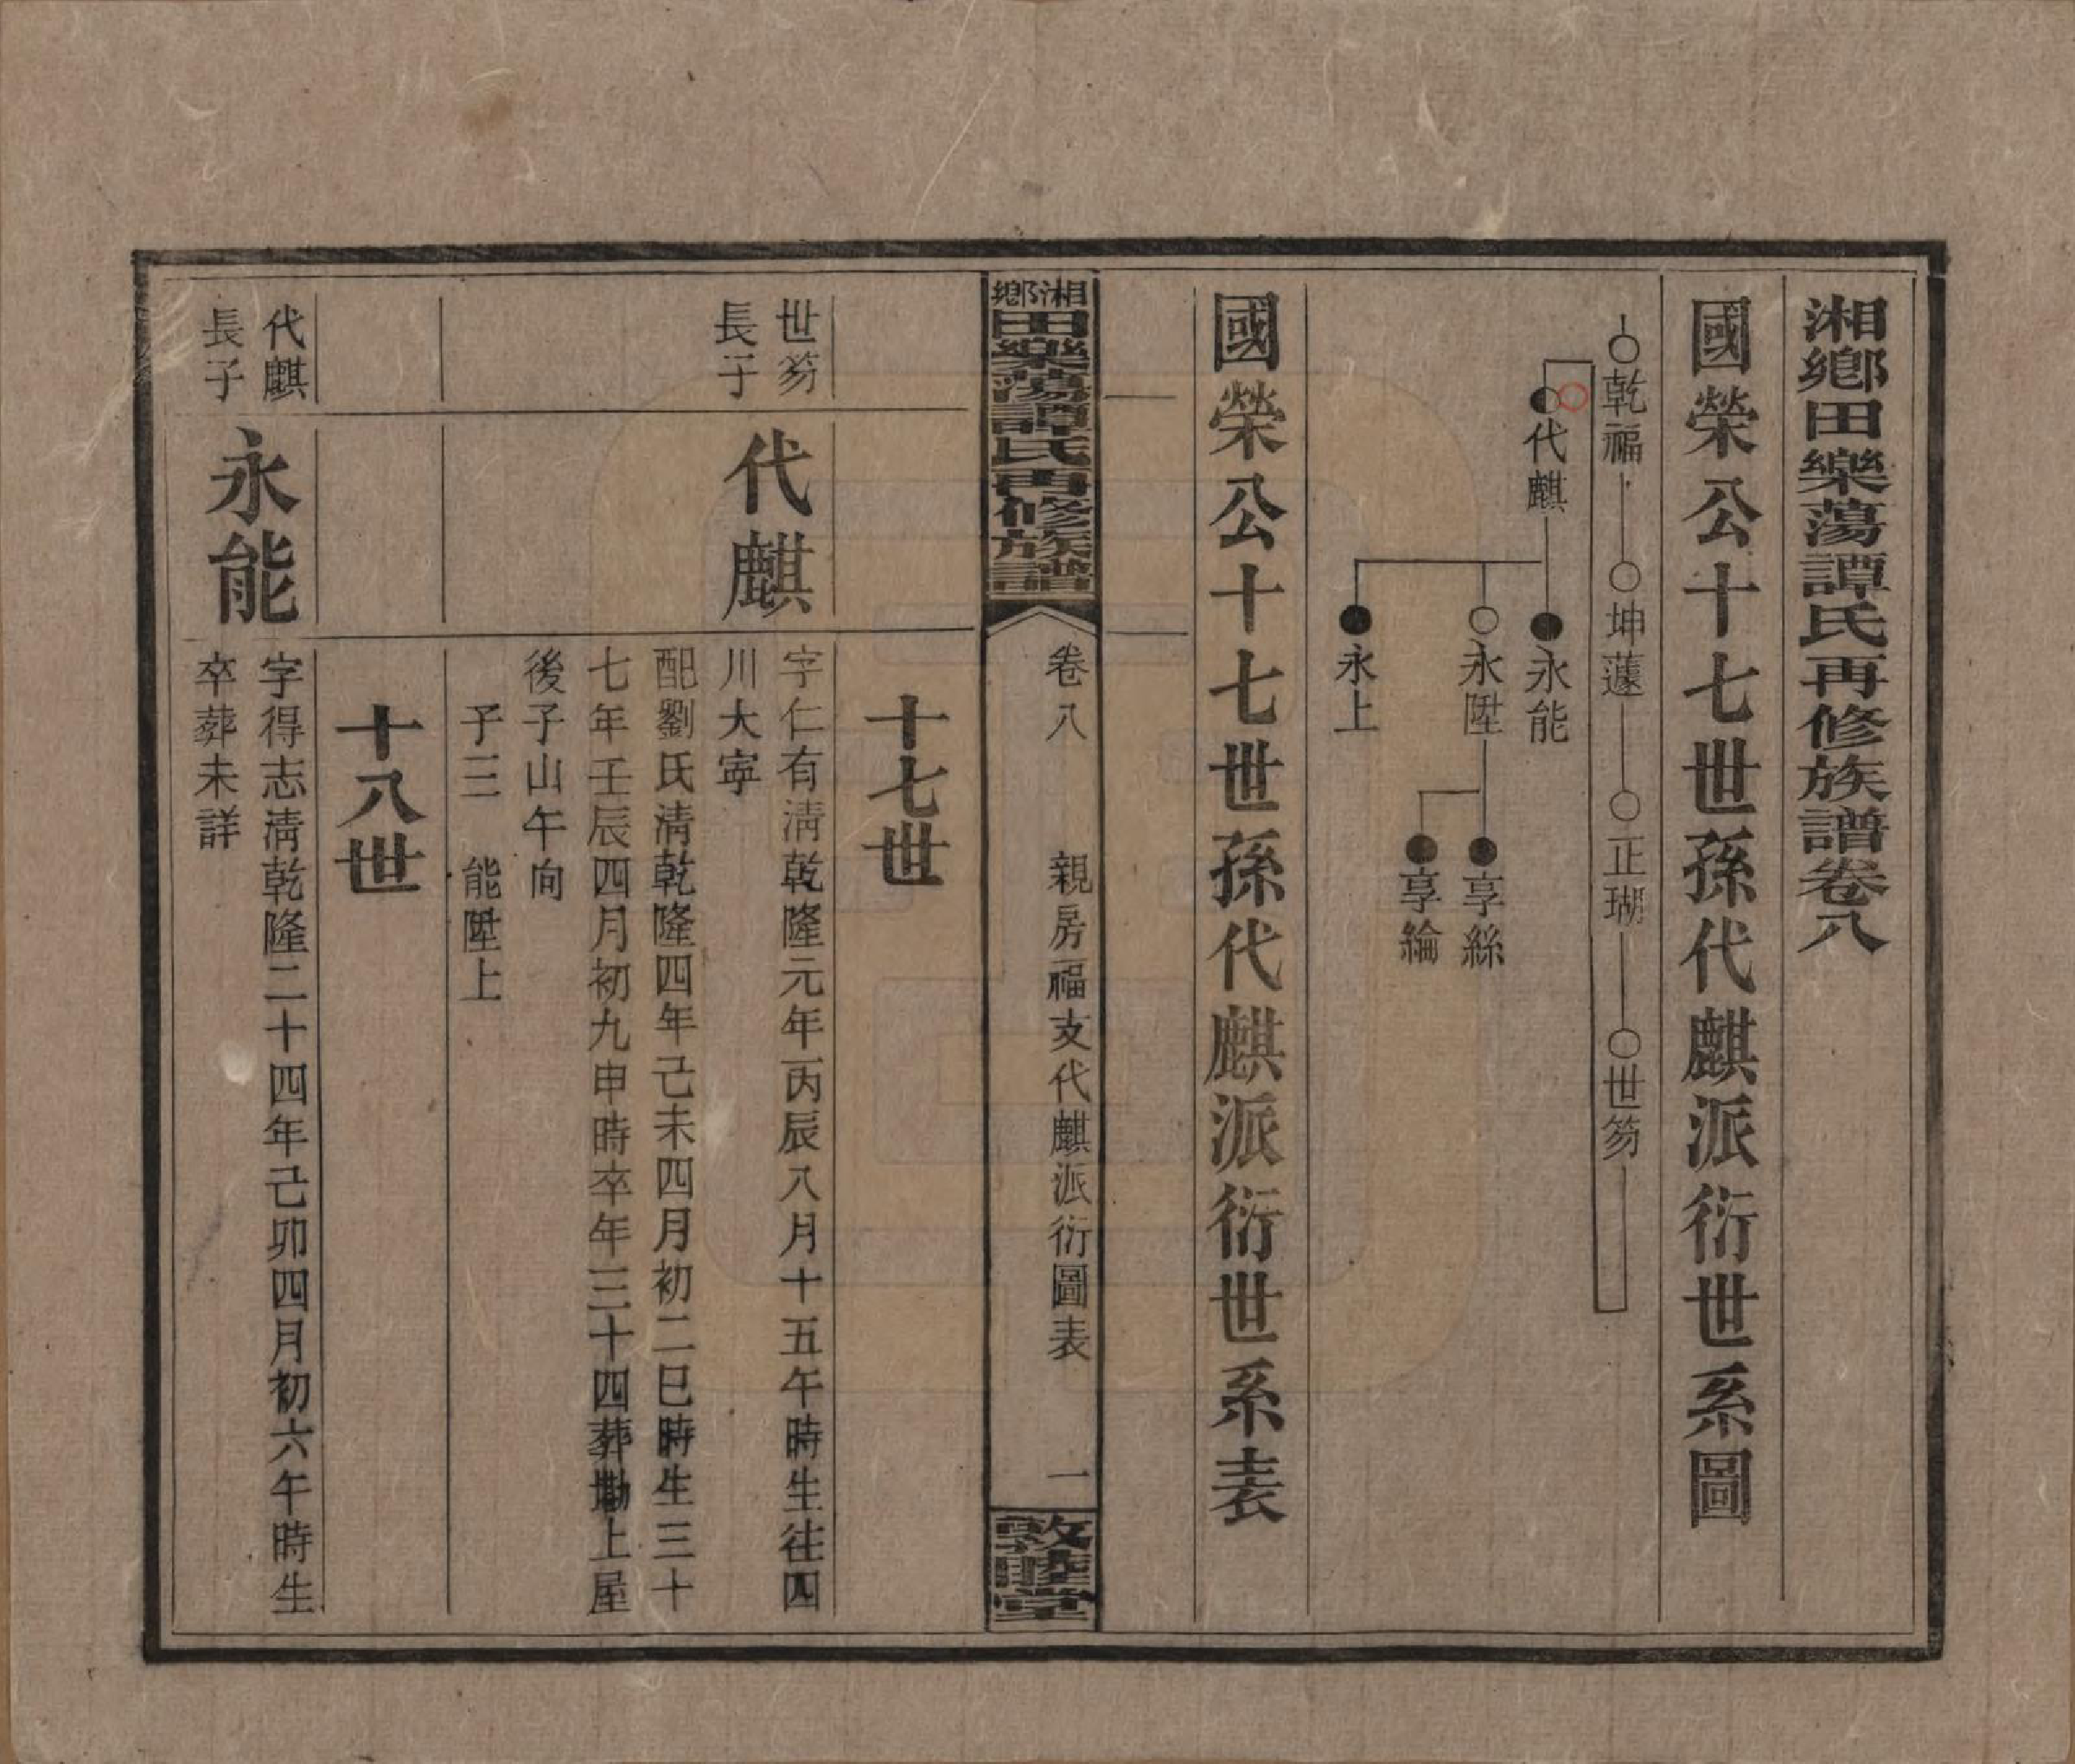 湘鄉田樂蕩譚氏再修族譜卷八
國榮公十七世孫代麒派衍世系圖
乾福
坤蘧
正瑚
世笏
代麒
永能
永陞
永上
享絲
享綸
國榮公十七世孫代麒派衍世系表
湘鄉田樂蕩譚氏再修族譜
卷八
親房福支代麒派衍圖表
一
敦睦堂
十七世
世笏
長子
代麒
字仁有淸乾隆元年丙辰八月十五午時生往四
川大寧
配劉氏淸乾隆四年己未四月初二巳時生三十
七年壬辰四月初九申時卒年三十四葬墈上屋
後子山午向
子三 能陞上
十八世
代麒
長子
永能
字得志淸乾隆二十四年己卯四月初六午時生
卒葬未詳